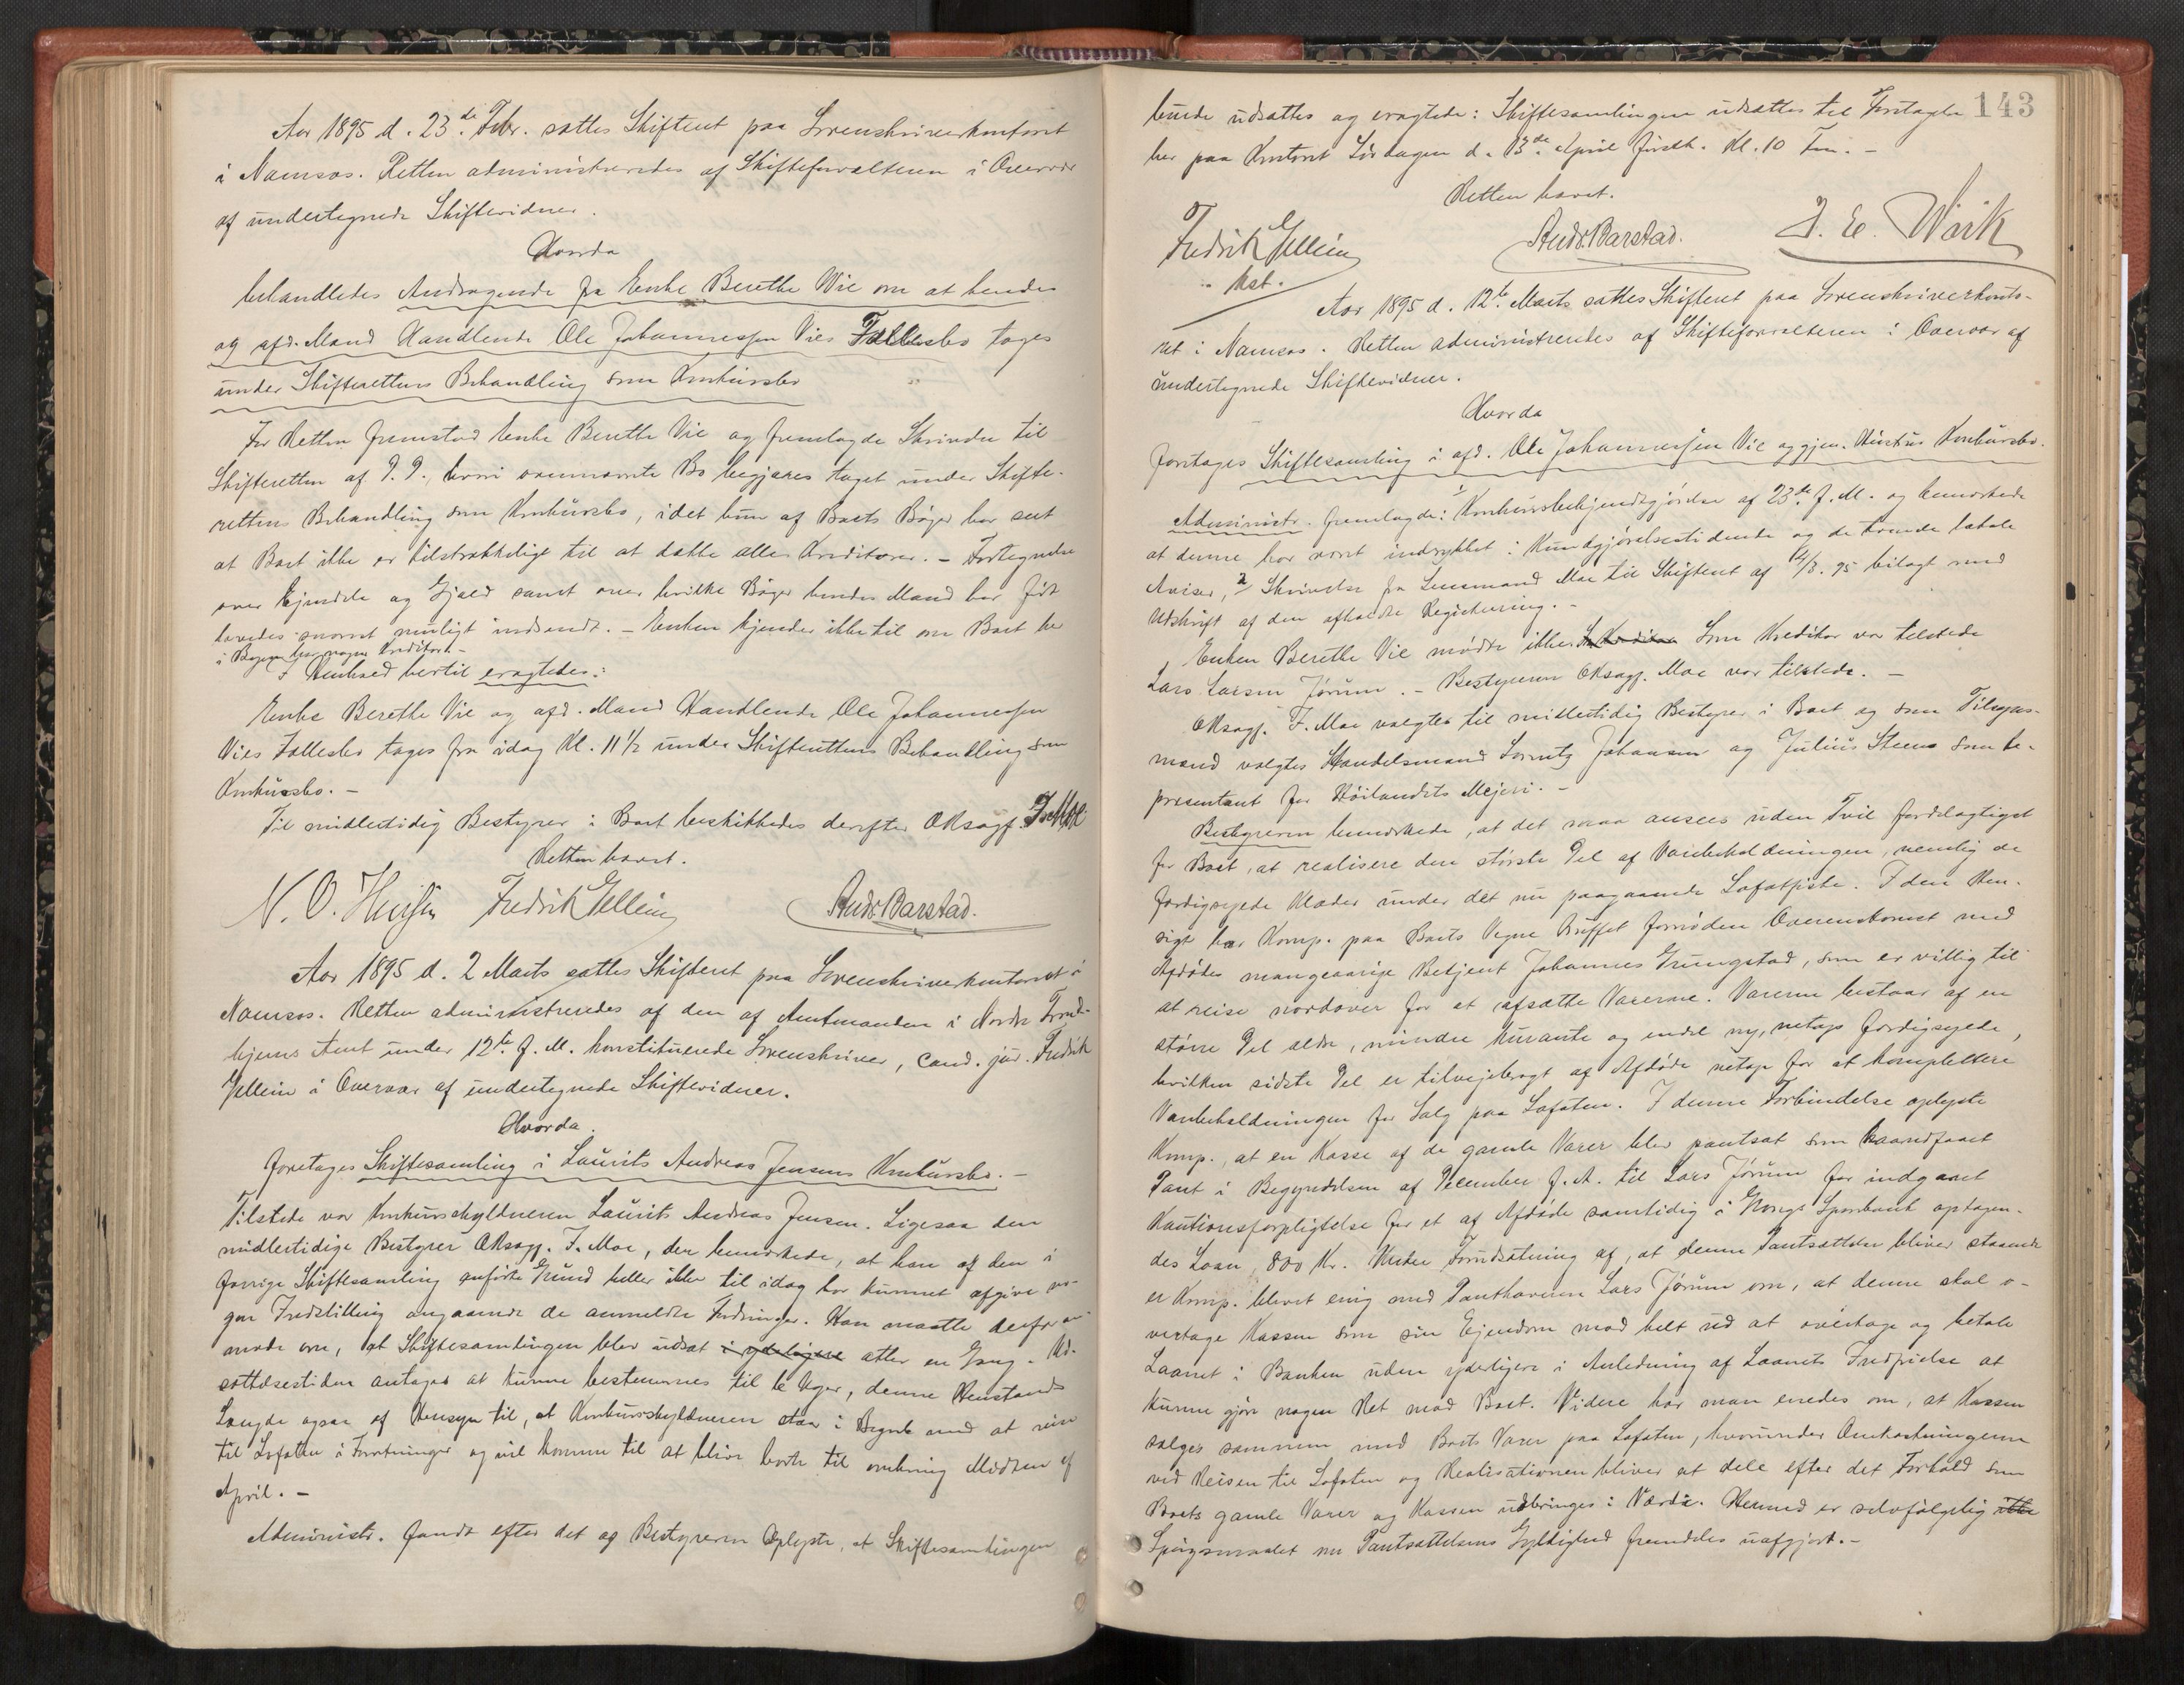 Aar 1895 d. 23de Febr. sattes Skifteret paa Sorenskriverkontoret
i Namsos. Retten administreredes af Skifteforvalteren i Overvær
af undertegnede Skiftevidner.
Hvorda
behandledes Andragende fra Enke Berethe Vie om at hendes
og afd. Mand Handlende Ole Johannessen Vies Fællesbo tages
under Skifterettens Behandling som Konkursbo
For Retten fremstod Enke Berethe Vie og fremlagde Skrivelse til
Skifteretten af D. D., hvori ovennævnte Bo begjæres taget under Skifte-
rettens Behandling som Konkursbo, idet hun af Boets Bøger har seet
at Boet ikke er tilstrækkeligt til at dække alle Kreditorer. – Fortegnelse
over Ejendele og Gjæld samt over hvilke Bøger hendes Mand har ført
lovedes snarest muligt indsendt. – Enken kjender ikke til om Boet har
i Bergen har nogen Kreditor. –
I Henhold hertil eragtedes:
Enke Berethe Vie og afd. Mand Handlende Ole Johannessen
Vies Fællesbo tages fra idag Kl. 11 1/2 under Skifterettens Behandling som
Konkursbo. –
Til midlertidig Bestyrer i Boet beskikkedes derefter ORsagf. F. Moe
Retten hævet.
N. O. Fredrik Gellein Andr. Barstad.
Aar 1895 d. 2 Marts sattes Skifteret paa Sorenskriverkontoret i
Namsos. Retten administreredes af den af Amtmanden i Nordre Trond-
hjems Amt under 12te f. M. konstituerede Sorenskriver, cand. jur. Fredrik
Gellein i Overvær af undertegnede Skiftevidner.
Hvorda.
foretages Skiftesamling i Laurits Andreas Jensens Konkursbo. –
Tilstede var Konkursskyldneren Laurits Andreas Jensen. Ligesaa den
midlertidige Bestyrer ORsagf. F. Moe, der bemærkede, at han af den i
forrige Skiftesamling anførte Grund heller ikke til idag har kunnet afgive no-
gen Indstilling angaaende de anmeldte Fordringer. Han maatte derfor an-
mode om, at Skiftesamlingen blev udsat i yderligere atter en Gang. Ud-
sættelsestiden antages at kunne bestemmes til 6 Uger, denne Henstands
Længde ogsaa af Hensyn til, at Konkursskyldneren staar i Begreb med at reise
til Lofoten i Forretninger og vil komme til at blive borte til omkring Midten af
April. –
Administr. fandt efter det af Bestyreren Oplyste, at Skiftesamlingen
143
burde udsættes og eragtede: Skiftesamlingen udsættes til Foretagelse
her paa Kontoret Lørdagen d. 13de April førstk. Kl. 10 Fm. –
Retten hævet.
Fredrik Gellein Andr. Barstad. J. E. Wiik
kst.
Aar 1895 d. 12te Marts sattes Skifteret paa Sorenskriverkonto-
ret i Namsos. Retten administreredes af Skifteforvalteren i Overvær af
undertegnede Skiftevidner.
Hvorda
foretages Skiftesamling i afd. Ole Johannessen Vie og gjen. Hustrus Konkursbo.
Administr. fremlagde: 1 Konkursbekjendtgjørelse af 23de f. M. og bemærkede
at denne har været indrykket i Kundgjørelsestidende og de tvende lokale
Aviser, 2 Skrivelse fra Lensmand Moe til Skifteret af 12/3. 95 bilagt med
Udskrift af den afholdte Registrering. –
Enken Berethe Vie mødte ikke. Som Kreditor var tilstede
Lars Larsen Jørum. – Bestyreren ORsagf. Moe var tilstede. –
ORsagf. F. Moe valgtes til midlertidig Bestyrer i Boet og som Tilsyns-
mænd valgtes Handelsmand Johansen og Julius Steens som Re-
præsentant for Høilandets Mejeri. –
Bestyreren bemærkede, at det maa ansees uden Tvil fordelagtigst
for Boet, at realisere den største Del af Varebeholdningen, nemlig de
færdigsyede Klæder under det nu paagaaende Lofotfiske. I den Hen-
sigt har Komp. paa Boets Vegne truffet fornøden Overenskomst med
Afdødes mangeaarige Betjent Johannes Grungstad, som er villig til
at reise nordover for at afsætte Varerne. Varerne bestaar af en
større Del ældre, mindre kurante og endel ny, netop færdigsyede,
hvilken sidste Del er tilvejebragt af Afdøde netop for at komplettere
Varebeholdningen for Salg paa Lofoten. I denne Forbindelse oplyste
Komp., at en Kasse af de gamle Varer blev pantsat som haandfaaet
Pant i Begyndelsen af December f. A. til Lars Jørum for indgaaet
Kautionsforpligtelse for et af Afdøde samtidig i Grongs Sparebank optagen-
des Laan, 800 Kr. Under Forudsætning af, at denne Pantsættelse bliver staaende
er Komp. blevet enig med Panthaveren Lars Jørum om, at denne skal o-
vertage Kassen som sin Ejendom mod helt ud at overtage og betale
Laanet i Banken uden yderligere i Anledning af Laanets Indfrielse at
kunne gjøre nogen Ret mod Boet. Videre har man enedes om, at Kassen
sælges sammen med Boets Varer paa Lofoten, hvorunder Omkostningerne
ved Reisen til Lofoten og Realisationen bliver at dele efter det Forhold som
Boets gamle Varer og Kassen udbringes i Værdi. Hermed er selvfølgelig ikke
Spørgsmaalet om Pantsættelsens Gyldighed fremdeles uafgjort. –